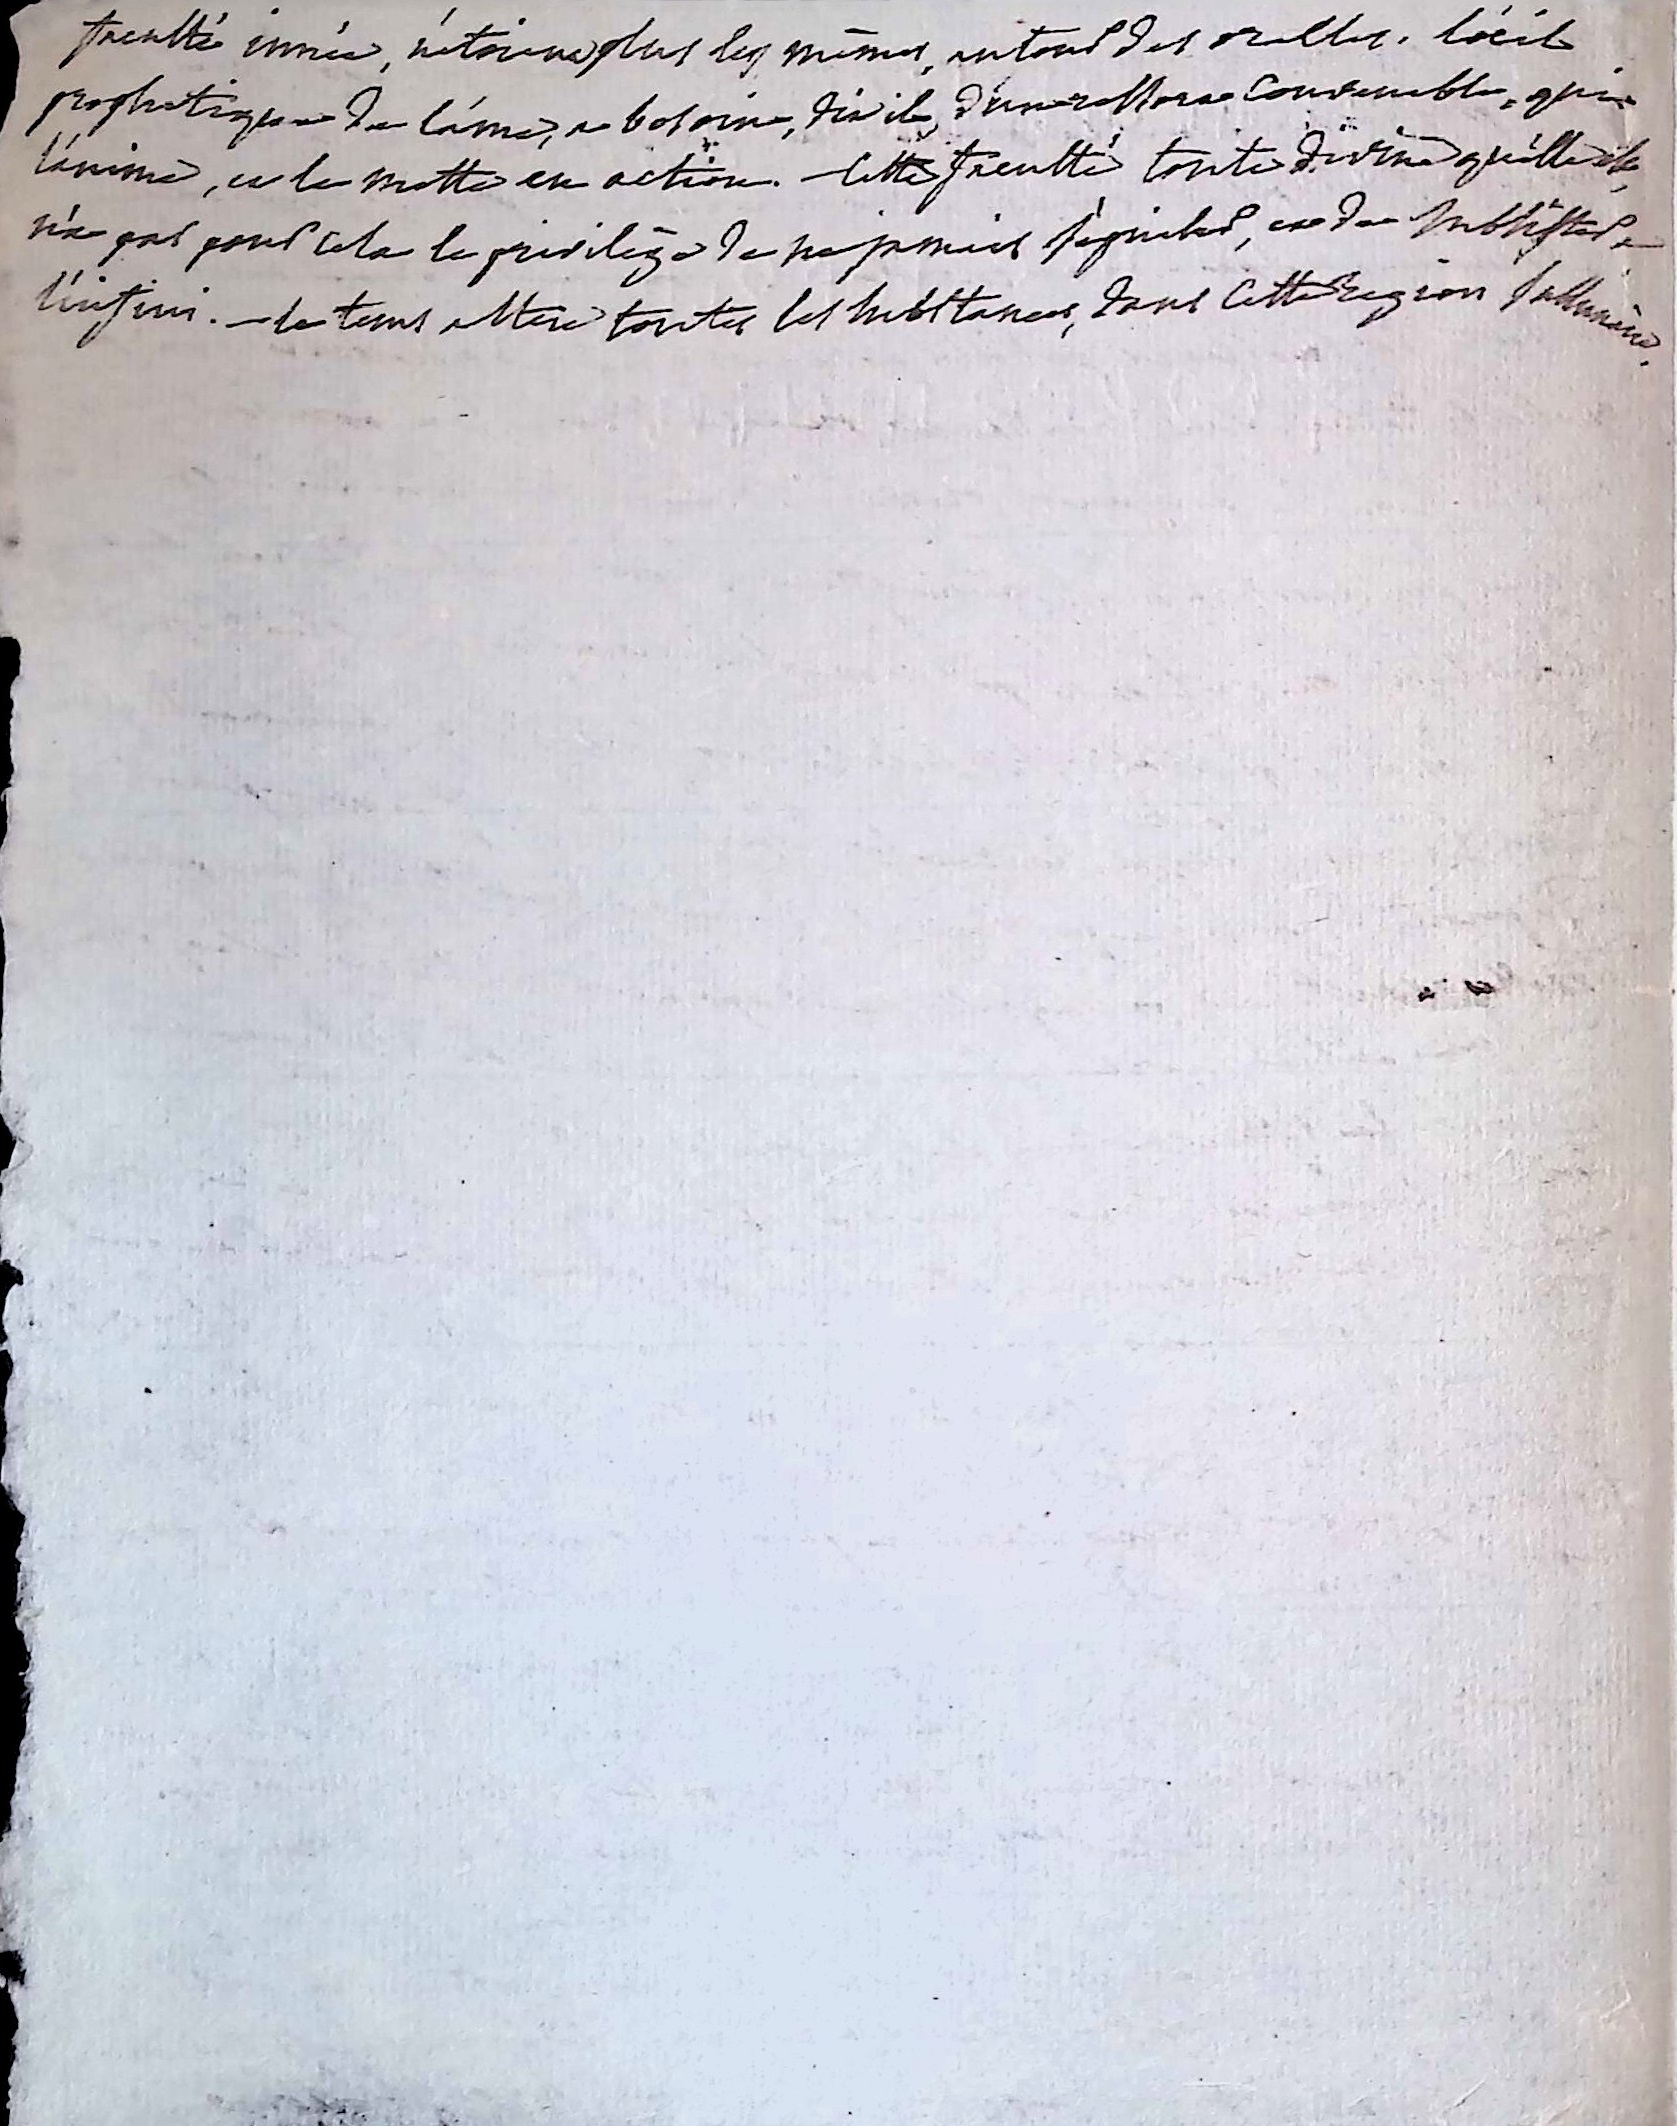 faculté innée, n'etoient plus les mêmes, autour des oracles. l'oeil
prophetique de l'ame, a besoin, dit il, d'un ressort convenable, qui
l'anime, et le mette en action. — Cette faculté toute divine qu'elle est,
n'a pas pour cela le privilège de ne jamais s'épuiser, et de subsister a
l'infini. — le tems altere toutes les substances, dans cette region sublunaire.